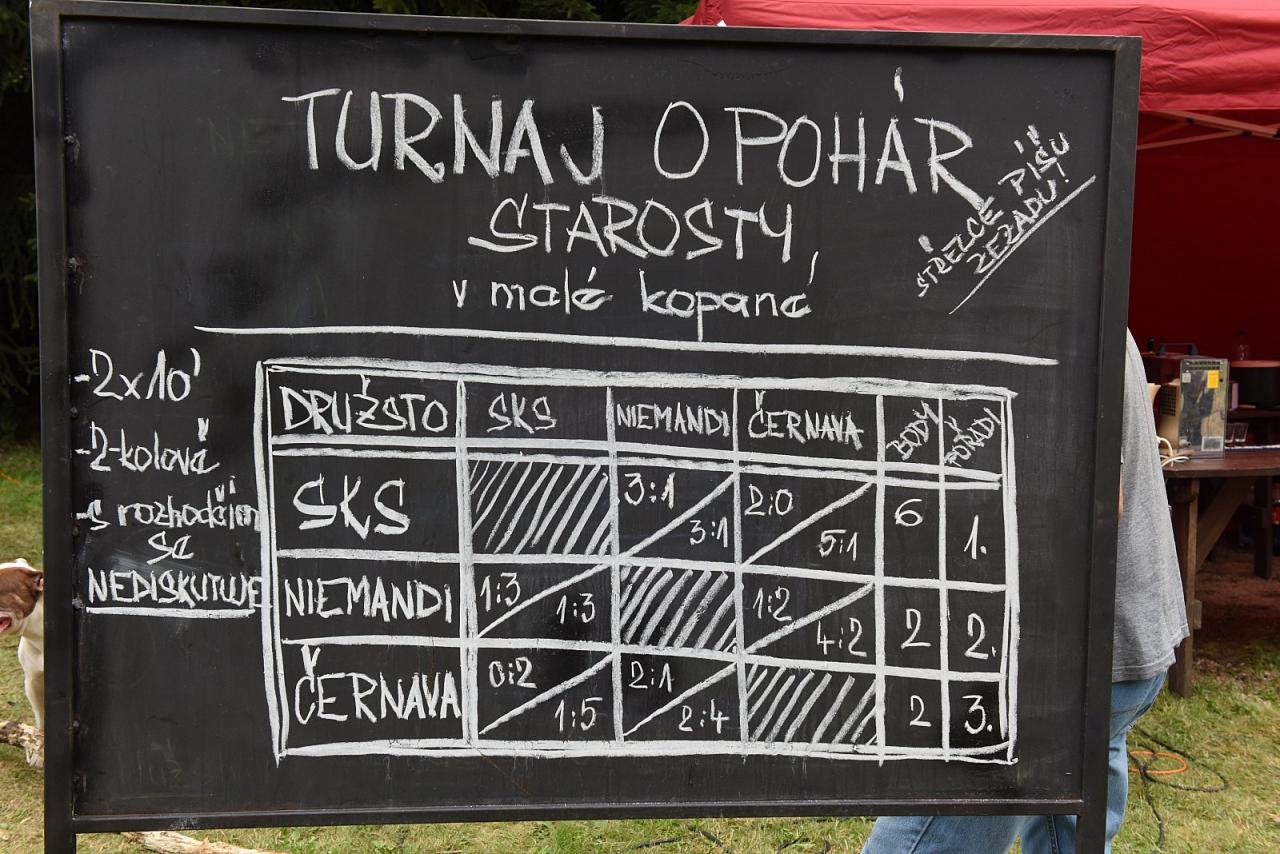 TURNAJ O POHÁR
STAROSTY
v malé kopané
STŘELCE PÍŠU
ZEZADU!
-2x10'
-2-kolově
-s rozhodčím
se
NEDISKUTUJE
DRUŽSTO SKS NIEMANDI ČERNAVA BODY POŘADÍ
SKS 3:1 3:1 2:0 5:1 6 1.
NIEMANDI 1:3 1:3 1:2 4:2 2 2.
ČERNAVA 0:2 1:5 2:1 2:4 2 3.